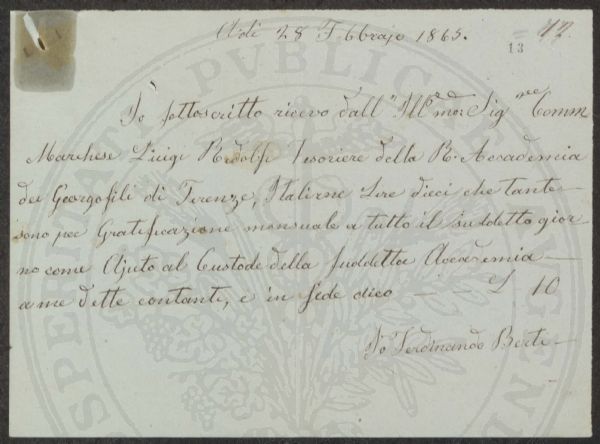 Adì 28 Febbrajo 1865.
13
12.
Io sottoscritto ricevo dall' Ill.mo Sig.re Comm
Marchese Luigi Ridolfi Tesoriere della R. Accademia
dei Georgofili di Firenze, Italiane Lire dieci che tante
sono per Gratificazione mensuale a tutto il suddetto gior
no come Ajuto al Custode della suddetta Accademia
a me dette contanti, e in fede dico — £ 10
Io Ferdinando Berti